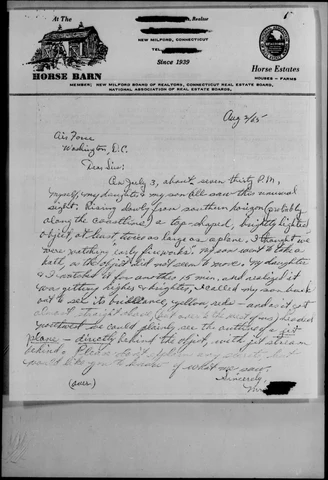 At The
HORSE BARN
Realtor
NEW MILFORD, CONNECTICUT
TEL.
Since 1939
Horse Estates
HOUSES - FARMS
MEMBER: NEW MILFORD BOARD OF REALTORS, CONNECTICUT REAL ESTATE BOARD,
NATIONAL ASSOCIATION OF REAL ESTATE BOARDS.
Aug 3/65
Air Force
Washington, D.C.
Dear Sirs:
On July 3, about seven thirty P.M,
myself, my daughter & my son all saw this unusual
sight. Rising slowly from southern horizon (probably
along the coastline) a top-shaped, brightly lighted
object, at least, twice as large as a plane. I thought we
were watching early fireworks. My son went to the
as the object did not seem to move. My daughter
& I watched it for another 15 min, and realized it
was getting higher & brighter, called my son back
out to see its brilliance, yellow, red - and as it got
almost straight above (but over to the west of us) headed
northwest we could plainly see the outline of a jet
plane - directly behind the object, with jet stream
behind.
would like you to know of what we saw.
Sincerely,
(over)